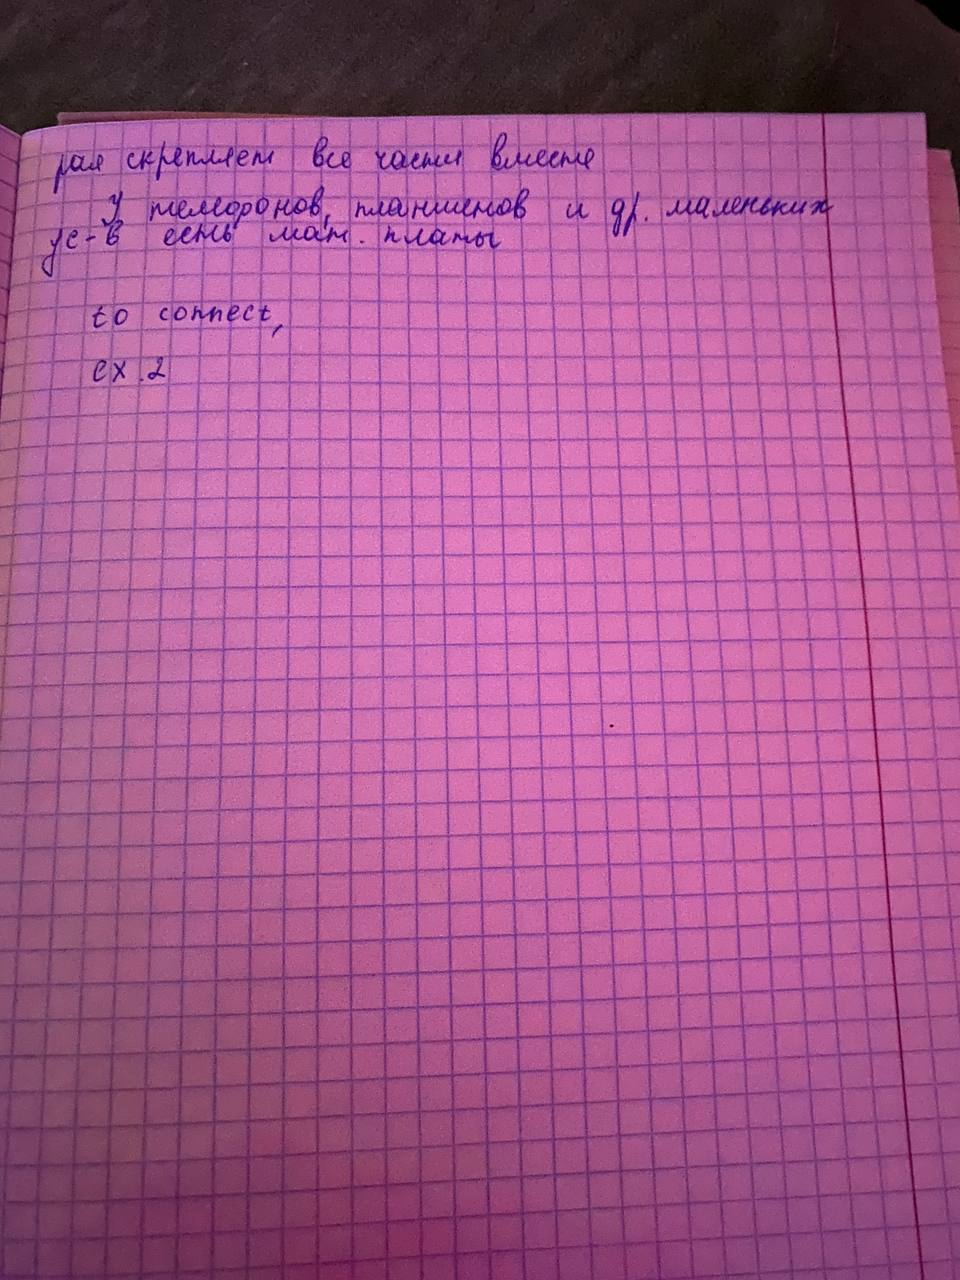 рая скрепляет все части вместе
У телефонов, планшетов и др. маленьких
ус-в есть мат. платы
to connect,
ex 2